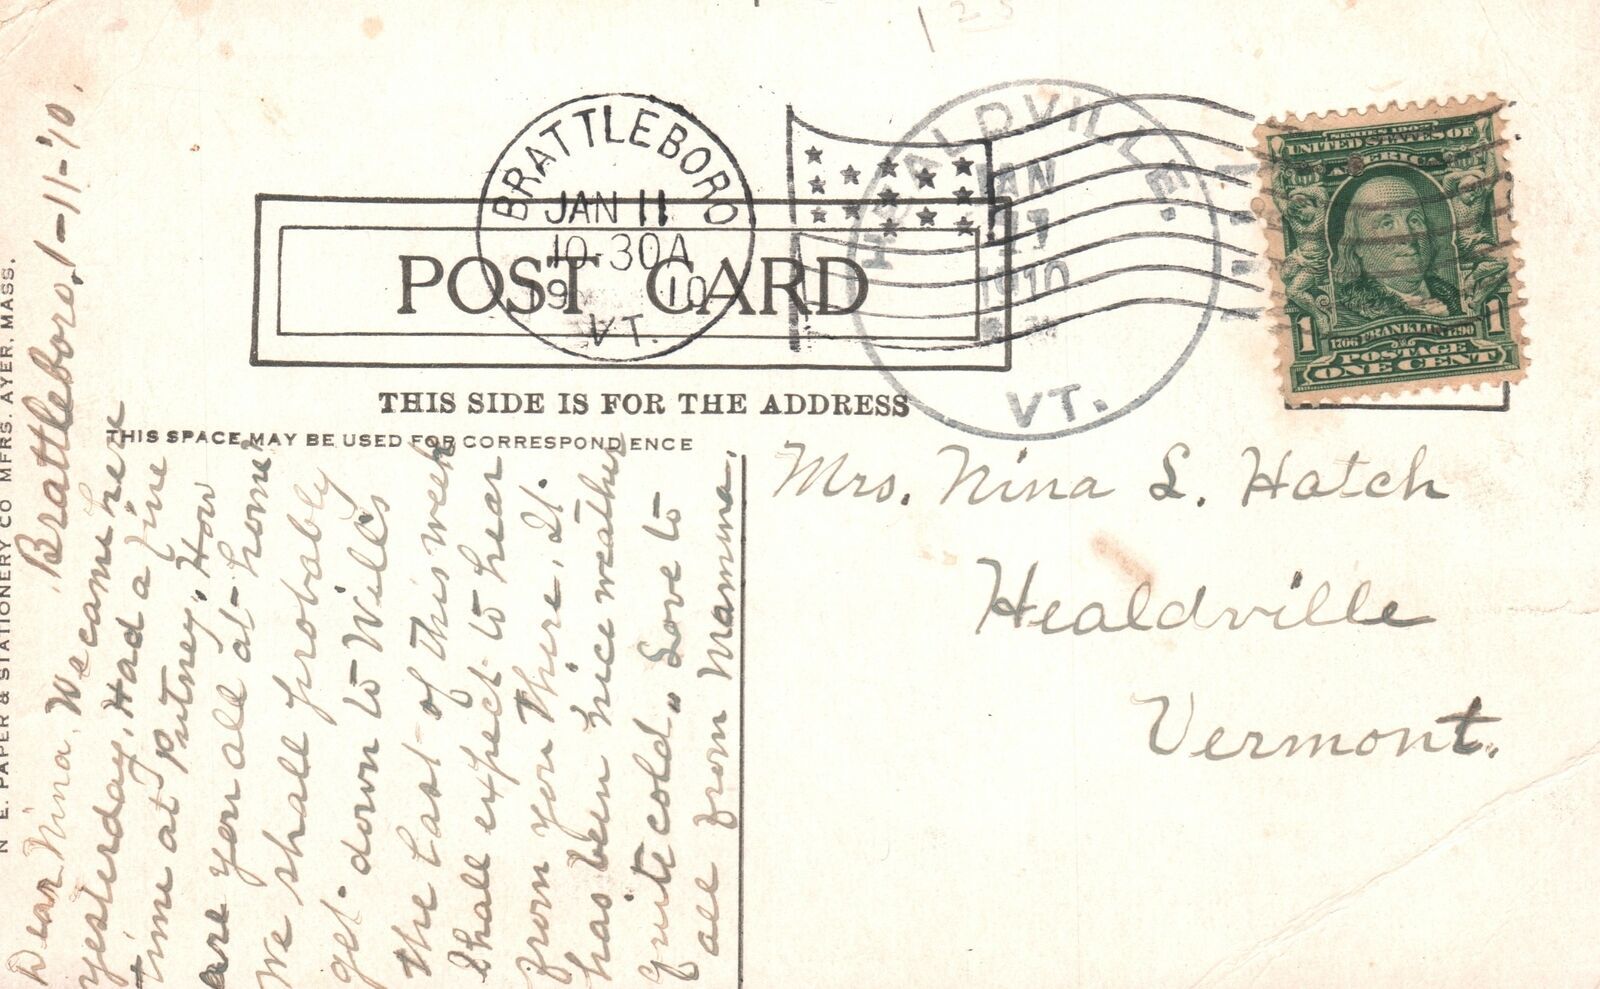 1 2 5
BRATTLEBORO
JAN 11
10-30A
9 10
VT.
HEALDVILLE.
JAN
1910
VT.
SERIES 1902
UNITED STATES OF
AMERICA
1 1
1706 FRANKLIN 1790
POSTAGE
ONE CENT
POST CARD
THIS SIDE IS FOR THE ADDRESS
THIS SPACE MAY BE USED FOR CORRESPONDENCE
N. E. PAPER & STATIONERY CO MFRS. AYER, MASS.
Brattleboro, 1-11-'10.
Dear Nina, We came here
yesterday, Had a fine
time at Putney, How
are you all at-home
We shall probably
get-down to Will's
the last-of this week
Shall expect to hear
from you there, It.
has been nice weather
quite cold, Love to
all from Mamma,
Mrs. Nina L. Hatch
Healdville
Vermont.